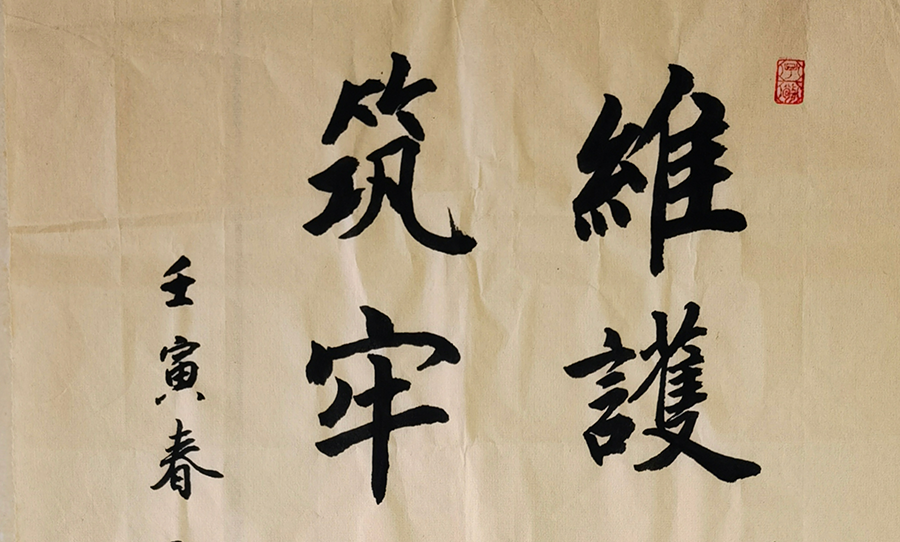 維護
筑牢
壬寅春